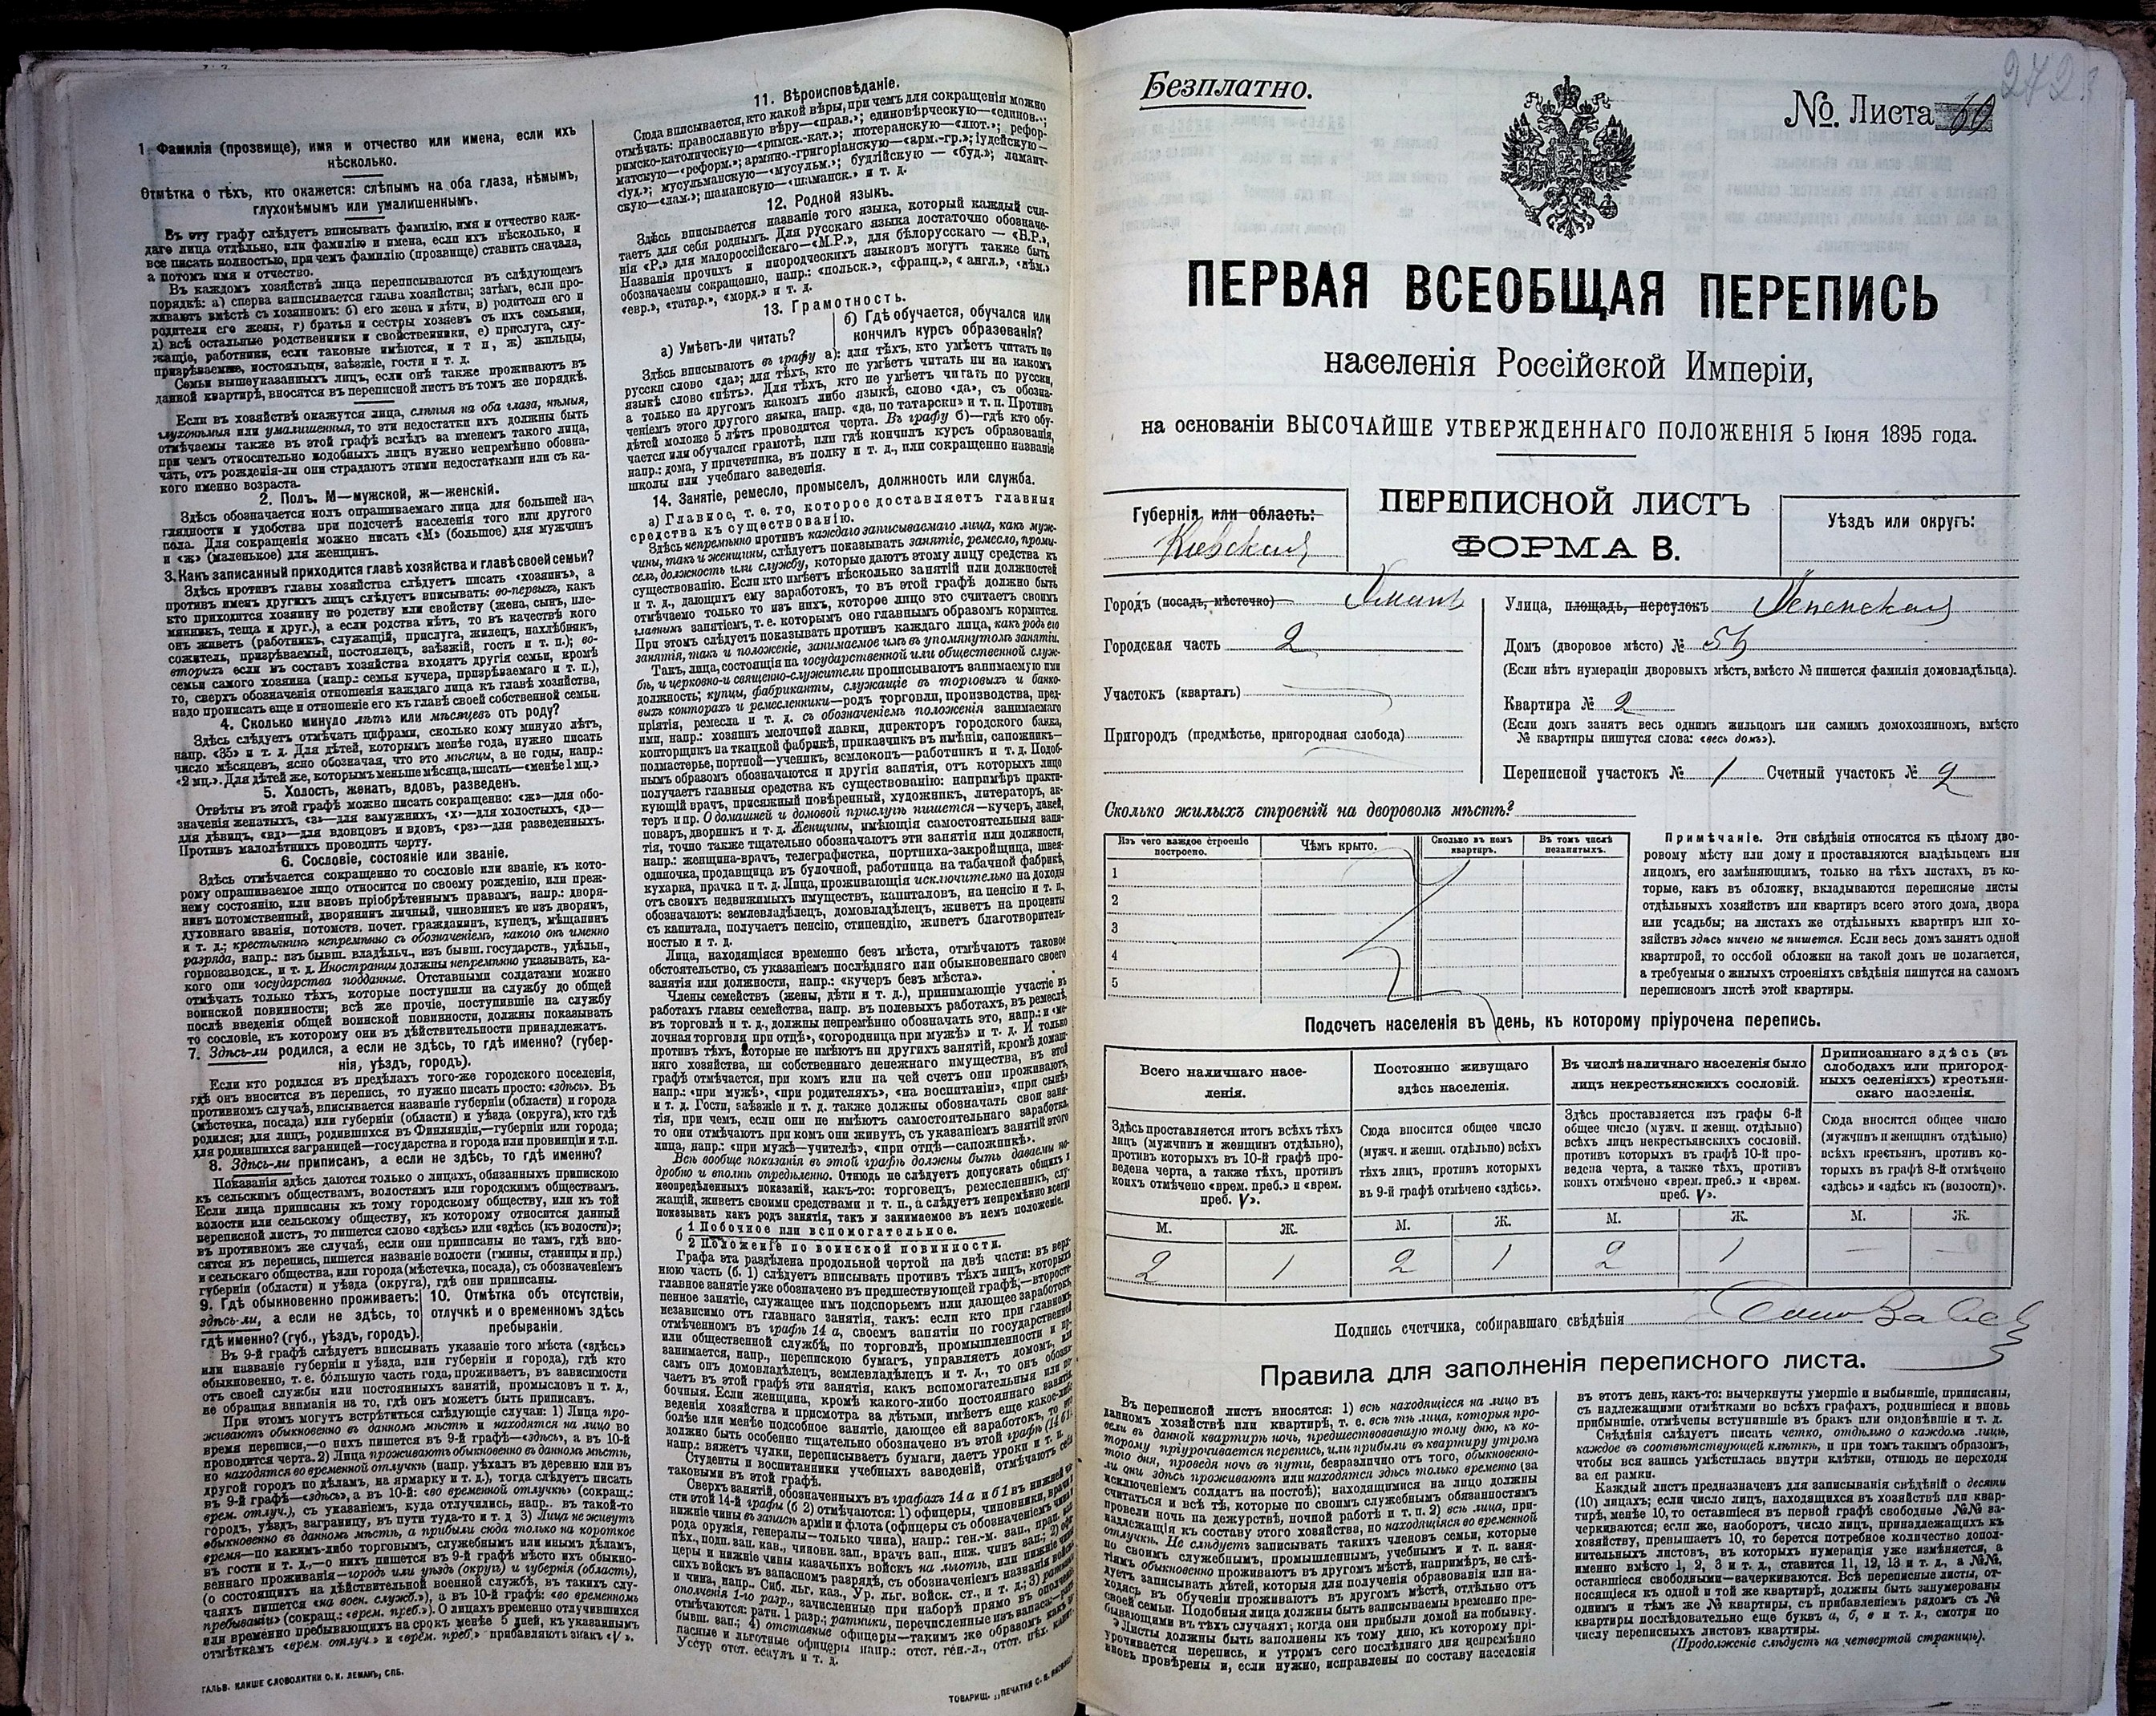 1. Фамилія (прозвище), имя и отчество или имена, если ихъ
нѣсколько.
Отмѣтка о тѣхъ, кто окажется: слѣпымъ на оба глаза, нѣмымъ,
глухонѣмымъ или умалишеннымъ.
Въ эту графу слѣдуетъ вписывать фамилію, имя и отчество каж-
даго лица отдѣльно, или фамилію и имена, если ихъ нѣсколько, и
все писать полностью, при чемъ фамилію (прозвище) ставить сначала,
а потомъ имя и отчество.
Въ каждомъ хозяйствѣ лица переписываются въ слѣдующемъ
порядкѣ: а) сперва записывается глава хозяйства; затѣмъ, если про-
живаютъ вмѣстѣ съ хозяиномъ: б) его жена и дѣти, в) родители его и
родители его жены, г) братья и сестры хозяевъ съ ихъ семьями,
д) всѣ остальные родственники и свойственники, е) прислуга, слу-
жащіе, работники, если таковые имѣются, и т п, ж) жильцы,
призрѣваемые, постояльцы, заѣзжіе, гости и т. д.
Семьи вышеуказанныхъ лицъ, если онѣ также проживаютъ въ
данной квартирѣ, вносятся въ переписной листъ въ томъ же порядкѣ.
Если въ хозяйствѣ окажутся лица, слѣпыя на оба глаза, нѣмыя,
глухонѣмыя или умалишенныя, то эти недостатки ихъ должны быть
отмѣчаемы также въ этой графѣ вслѣдъ за именемъ такого лица,
при чемъ относительно подобныхъ лицъ нужно непремѣнно обозна-
чать, отъ рожденія-ли они страдаютъ этими недостатками или съ ка-
кого именно возраста.
2. Полъ. М—мужской, ж—женскій.
Здѣсь обозначается полъ опрашиваемаго лица для большей на-
глядности и удобства при подсчетѣ населенія того или другого
пола. Для сокращенія можно писать «М» (большое) для мужчинъ
и «ж» (маленькое) для женщинъ.
3. Какъ записанный приходится главѣ хозяйства и главѣ своей семьи?
Здѣсь противъ главы хозяйства слѣдуетъ писать «хозяинъ», а
противъ именъ другихъ лицъ слѣдуетъ вписывать: во-первыхъ, какъ
кто приходится хозяину по родству или свойству (жена, сынъ, пле-
мянникъ, теща и друг.), а если родства нѣтъ, то въ качествѣ кого
онъ живетъ (работникъ, служащій, прислуга, жилецъ, нахлѣбникъ,
сожитель, призрѣваемый, постоялецъ, заѣзжій, гость и т. п.); во-
вторыхъ если въ составъ хозяйства входятъ другія семьи, кромѣ
семьи самого хозяина (напр.: семья кучера, призрѣваемаго и т. п.),
то, сверхъ обозначенія отношенія каждаго лица къ главѣ хозяйства,
надо прописать еще и отношеніе его къ главѣ своей собственной семьи.
4. Сколько минуло лѣтъ или мѣсяцевъ отъ роду?
Здѣсь слѣдуетъ отмѣчать цифрами, сколько кому минуло лѣтъ,
напр. «35» и т. д. Для дѣтей, которымъ менѣе года, нужно писать
число мѣсяцевъ, ясно обозначая, что это мѣсяцы, а не годы, напр.:
«2 мц.». Для дѣтей же, которымъ меньше мѣсяца, писать—«менѣе 1 мц.»
5. Холость, женатъ, вдовъ, разведенъ.
Отвѣты въ этой графѣ можно писать сокращенно: «ж»—для обо-
значенія женатыхъ, «з»—для замужнихъ, «х»—для холостыхъ, «д»—
для дѣвицъ, «вд»—для вдовцовъ и вдовъ, «рз»—для разведенныхъ.
Противъ малолѣтнихъ проводить черту.
6. Сословіе, состояніе или званіе.
Здѣсь отмѣчается сокращенно то сословіе или званіе, къ кото-
рому опрашиваемое лицо относится по своему рожденію, или преж-
нему состоянію, или вновь пріобрѣтеннымъ правамъ, напр.: дворя-
нинъ потомственный, дворянинъ личный, чиновникъ не изъ дворянъ,
духовнаго званія, потомств. почет. гражданинъ, купецъ, мѣщанинъ
и т. д.; крестьянинъ непремѣнно съ обозначеніемъ, какого онъ именно
разряда, напр.: изъ бывш. владѣльч., изъ бывш. государств., удѣльн.,
горнозаводск., и т. д. Иностранцы должны непремѣнно указывать, ка-
кого они государства подданные. Отставными солдатами можно
отмѣчать только тѣхъ, которые поступили на службу до общей
воинской повинности; всѣ же прочіе, поступившіе на службу
послѣ введенія общей воинской повинности, должны показывать
то сословіе, къ которому они въ дѣйствительности принадлежатъ.
7. Здѣсь-ли родился, а если не здѣсь, то гдѣ именно? (губер-
нія, уѣздъ, городъ).
Если кто родился въ предѣлахъ того-же городского поселенія,
гдѣ онъ вносится въ перепись, то нужно писать просто: «здѣсь». Въ
противномъ случаѣ, вписывается названіе губерніи (области) и города
(мѣстечка, посада) или губерніи (области) и уѣзда (округа), кто гдѣ
родился; для лицъ, родившихся въ Финляндіи,—губерніи или города;
для родившихся заграницей—государства и города или провинціи и т.п.
8. Здѣсь-ли приписанъ, а если не здѣсь, то гдѣ именно?
Показанія здѣсь даются только о лицахъ, обязанныхъ припискою
къ сельскимъ обществамъ, волостямъ или городскимъ обществамъ.
Если лица приписаны къ тому городскому обществу, или къ той
волости или сельскому обществу, къ которому относится данный
переписной листъ, то пишется слово «здѣсь» или «здѣсь (къ волости)»;
въ противномъ же случаѣ, если они приписаны не тамъ, гдѣ вно-
сятся въ перепись, пишется названіе волости (гмины, станицы и пр.)
и сельскаго общества, или города (мѣстечка, посада), съ обозначеніемъ
губерніи (области) и уѣзда (округа), гдѣ они приписаны.
9. Гдѣ обыкновенно проживаетъ:
здѣсь-ли, а если не здѣсь, то
гдѣ именно? (губ., уѣздъ, городъ).
10. Отмѣтка объ отсутствіи,
отлучкѣ и о временномъ здѣсь
пребываніи.
Въ 9-й графѣ слѣдуетъ вписывать указаніе того мѣста («здѣсь»
или названіе губерніи и уѣзда, или губерніи и города), гдѣ кто
обыкновенно, т. е. бо́льшую часть года, проживаетъ, въ зависимости
отъ своей службы или постоянныхъ занятій, промысловъ и т. д.,
не обращая вниманія на то, гдѣ онъ можетъ быть приписанъ.
При этомъ могутъ встрѣтиться слѣдующіе случаи: 1) Лица про-
живаютъ обыкновенно въ данномъ мѣстѣ и находятся на лицо во
время переписи,—о нихъ пишется въ 9-й графѣ—«здѣсь», а въ 10-й
проводится черта. 2) Лица проживаютъ обыкновенно въ данномъ мѣстѣ,
но находятся во временной отлучкѣ (напр. уѣхалъ въ деревню или въ
другой городъ по дѣламъ, на ярмарку и т. д.), тогда слѣдуетъ писать
въ 9-й графѣ—«здѣсь», а въ 10-й: «во временной отлучкѣ» (сокращ.:
врем. отлуч.), съ указаніемъ, куда отлучились, напр.. въ такой-то
городъ, уѣздъ, заграницу, въ пути туда-то и т. д 3) Лица не живутъ
обыкновенно въ данномъ мѣстѣ, а прибыли сюда только на короткое
время—по какимъ-либо торговымъ, служебнымъ или инымъ дѣламъ,
въ гости и т. д.,—о нихъ пишется въ 9-й графѣ мѣсто ихъ обыкно-
веннаго проживанія—городъ или уѣздъ (округъ) и губернія (область),
(о состоящихъ на дѣйствительной военной службѣ, въ такихъ слу-
чаяхъ пишется «на воен. служб.»), а въ 10-й графѣ: «во временномъ
пребываніи» (сокращ.: «врем. преб.»). О лицахъ временно отлучившихся
или временно пребывающихъ на срокъ менѣе 5 дней, къ указаннымъ
отмѣткамъ «врем. отлуч.» и «врем. преб.» прибавляютъ знакъ «V».
ГАЛЬВ. КЛИШЕ СЛОВОЛИТНИ О. И. ЛЕМАНЪ, СПБ.
11. Вѣроисповѣданіе.
Сюда вписывается, кто какой вѣры, при чемъ для сокращенія можно
отмѣчать: православную вѣру—«прав.»; единовѣрческую—«единов.»;
римско-католическую—«римск.-кат.»; лютеранскую—«лют.»; рефор-
матскую—«реформ.»; армяно.-григоріанскую—«арм.-гр.»; іудейскую—
«іуд.»; мусульманскую—«мусульм.»; буддійскую—«буд.»; ламаит-
скую—«лам.»; шаманскую—«шаманск.» и т. д.
12. Родной языкъ.
Здѣсь вписывается названіе того языка, который каждый счи-
таетъ для себя роднымъ. Для русскаго языка достаточно обозначе-
нія «Р.» для малороссійскаго—«М.Р.», для бѣлорусскаго — «Б.Р.»,
Названія прочихъ и инородческихъ языковъ могутъ также быть
обозначаемы сокращенно, напр.: «польск.», «франц.», «англ.», «нѣм.»
«евр.», «татар.», «морд.» и т. д.
13. Грамотность.
а) Умѣетъ-ли читать?
б) Гдѣ обучается, обучался или
кончилъ курсъ образованія?
Здѣсь вписываютъ въ графу а): для тѣхъ, кто умѣетъ читать по
русски слово «да»; для тѣхъ, кто не умѣетъ читать ни на какомъ
языкѣ слово «нѣтъ». Для тѣхъ, кто не умѣетъ читать по русски,
а только на другомъ какомъ либо языкѣ, слово «да», съ обозна-
ченіемъ этого другого языка, напр. «да, по татарски» и т. п. Противъ
дѣтей моложе 5 лѣтъ проводится черта. Въ графу б)—гдѣ кто обу-
чается или обучался грамотѣ, или гдѣ кончилъ курсъ образованія,
напр.: дома, у причетника, въ полку и т. д., или сокращенно названіе
школы или учебнаго заведенія.
14. Занятіе, ремесло, промыселъ, должность или служба.
а) Главное, т. е. то, которое доставляетъ главныя
средства къ существованію.
Здѣсь непремѣнно противъ каждаго записываемаго лица, какъ муж-
чины, такъ и женщины, слѣдуетъ показывать занятіе, ремесло, промы-
селъ, должность или службу, которые даютъ этому лицу средства къ
существованію. Если кто имѣетъ нѣсколько занятій или должностей
и т. д., дающихъ ему заработокъ, то въ этой графѣ должно быть
отмѣчаемо только то изъ нихъ, которое лицо это считаетъ своимъ
главнымъ занятіемъ, т. е. которымъ оно главнымъ образомъ кормится.
При этомъ слѣдуетъ показывать противъ каждаго лица, какъ родъ его
занятія, такъ и положеніе, занимаемое имъ въ упомянутомъ занятіи.
Такъ, лица, состоящія на государственной или общественной служ-
бѣ, и церковно-и священно-служители прописываютъ занимаемую ими
должность; купцы, фабриканты, служащіе въ торговыхъ и банко-
выхъ конторахъ и ремесленники—родъ торговли, производства, пред-
пріятія, ремесла и т. д. съ обозначеніемъ положенія занимаемаго
ими, напр.: хозяинъ мелочной лавки, директоръ городского банка,
конторщикъ на ткацкой фабрикѣ, приказчикъ въ имѣніи, сапожникъ—
подмастерье, портной—ученикъ, землекопъ—работникъ и т. д. Подоб-
нымъ образомъ обозначаются и другія занятія, отъ которыхъ лицо
получаетъ главныя средства къ существованію: напримѣръ практи-
кующій врачъ, присяжный повѣренный, художникъ, литераторъ, ак-
теръ и пр. О домашней и домовой прислугѣ пишется—кучеръ, лакей,
поваръ, дворникъ и т. д. Женщины, имѣющія самостоятельныя заня-
тія, точно также тщательно обозначаютъ эти занятія или должности,
напр.: женщина-врачъ, телеграфистка, портниха-закройщица, швея-
одиночка, продавщица въ булочной, работница на табачной фабрикѣ,
кухарка, прачка и т. д. Лица, проживающія исключительно на доходы
отъ своихъ недвижимыхъ имуществъ, капиталовъ, на пенсію и т. п.,
обозначаютъ: землевладѣлецъ, домовладѣлецъ, живетъ на проценты
съ капитала, получаетъ пенсію, стипендію, живетъ благотворитель-
ностью и т. д.
Лица, находящіяся временно безъ мѣста, отмѣчаютъ таковое
обстоятельство, съ указаніемъ послѣдняго или обыкновеннаго своего
занятія или должности, напр.: «кучеръ безъ мѣста».
Члены семействъ (жены, дѣти и т. д.), принимающіе участіе въ
работахъ главы семейства, напр. въ полевыхъ работахъ, въ ремеслѣ,
въ торговлѣ и т. д., должны непремѣнно обозначать это, напр.: и «ме-
лочная торговля при отцѣ», «огородница при мужѣ» и т. д. И только
противъ тѣхъ, которые не имѣютъ ни другихъ занятій, кромѣ домаш-
няго хозяйства, ни собственнаго денежнаго имущества, въ этой
графѣ отмѣчается, при комъ или на чей счетъ они проживаютъ,
напр.: «при мужѣ», «при родителяхъ», «на воспитаніи», «при сынѣ»
и т. д. Гости, заѣзжіе и т. д. также должны обозначать свои заня-
тія, при чемъ, если они не имѣютъ самостоятельнаго заработка,
то они отмѣчаютъ при комъ они живутъ, съ указаніемъ занятій этого
лица, напр.: «при мужѣ—учителѣ», «при отцѣ—сапожникѣ».
Всѣ вообще показанія въ этой графѣ должны быть даваемы по-
дробно и вполнѣ опредѣленно. Отнюдь не слѣдуетъ допускать общихъ и
неопредѣленныхъ показаній, какъ-то: торговецъ, ремесленникъ, слу-
жащій, живетъ своими средствами и т. п., а слѣдуетъ непремѣнно всегда
показывать какъ родъ занятія, такъ и занимаемое въ немъ положеніе.
б 1 Побочное или вспомогательное.
2 Положеніе по воинской повинности.
Графа эта раздѣлена продольной чертой на двѣ части: въ верх-
нюю часть (б. 1) слѣдуетъ вписывать противъ тѣхъ лицъ, которыхъ
главное занятіе уже обозначено въ предшествующей графѣ,—второсте-
пенное занятіе, служащее имъ подспорьемъ или дающее заработокъ,
независимо отъ главнаго занятія, такъ: если кто при главномъ,
отмѣченномъ въ графѣ 14 а, своемъ занятіи по государственной
или общественной службѣ, по торговлѣ, промышленности и пр.
занимается, напр., перепискою бумагъ, управляетъ домомъ, или
самъ онъ домовладѣлецъ, землевладѣлецъ и т. д., то онъ обозна-
чаетъ въ этой графѣ эти занятія, какъ вспомогательныя или по-
бочныя. Если женщина, кромѣ какого-либо постояннаго занятія,
веденія хозяйства и присмотра за дѣтьми, имѣетъ еще какое-либо
болѣе или менѣе подсобное занятіе, дающее ей заработокъ, то это
должно быть особенно тщательно обозначено въ этой графѣ (14 б 1.
напр.: вяжетъ чулки, переписываетъ бумаги, даетъ уроки и т. п.
Студенты и воспитанники учебныхъ заведеній, отмѣчаютъ себя
таковыми въ этой графѣ.
Сверхъ занятій, обозначенныхъ въ графахъ 14 а и б 1 въ нижней ча-
сти этой 14-й графы (б 2) отмѣчаются: 1) офицеры, чиновники, врачи и
нижніе чины въ запасѣ арміи и флота (офицеры съ обозначеніемъ чина и
рода оружія, генералы—только чина), напр.: ген.-м. зап., прап. зап.
пѣх., подп. зап. кав., чиновн. зап., врачъ зап., ниж. чинъ зап.; 2) офи-
церы и нижніе чины казачьихъ войскъ на льготѣ, или нижніе чины
сихъ войскъ въ запасномъ разрядѣ, съ обозначеніемъ названія войска
и чина, напр.. Сиб. льг. каз., Ур. льг. войск. ст., и т. д.; 3) ратники
ополченія 1-го разр., зачисленные при наборѣ прямо въ ополченіе
отмѣчаются: ратн. 1 разр.; ратники, перечисленные изъ запаса—рат.
бывш. зап.; 4) отставные офицеры—такимъ же образомъ какъ за-
пасные и льготные офицеры напр.: отст. ген.-л., отст. пѣх. капит.,
Уссур отст. есаулъ и т. д.
Безплатно.
272
№ Листа 60
ПЕРВАЯ ВСЕОБЩАЯ ПЕРЕПИСЬ
населенія Россійской Имперіи,
на основаніи ВЫСОЧАЙШЕ УТВЕРЖДЕННАГО ПОЛОЖЕНІЯ 5 Іюня 1895 года.
Губернія или область:
Кіевская
ПЕРЕПИСНОЙ ЛИСТЪ
ФОРМА В.
Уѣздъ или округъ:
Городъ (посадъ, мѣстечко) Умань
Городская часть 2
Участокъ (кварталъ)
Пригородъ (предмѣстье, пригородная слобода)
Улица, площадь, переулокъ
Домъ (дворовое мѣсто) №
(Если нѣтъ нумераціи дворовыхъ мѣстъ, вмѣсто № пишется фамилія домовладѣльца).
Квартира № 2
(Если домъ занятъ весь однимъ жильцомъ или самимъ домохозяиномъ, вмѣсто
№ квартиры пишутся слова: «весь домъ»).
Переписной участокъ № 1 Счетный участокъ № 2
Сколько жилыхъ строеній на дворовомъ мѣстѣ?
Изъ чего каждое строеніе
построено.
Чѣмъ крыто.
Сколько въ немъ
квартиръ.
Въ томъ числѣ
незанятыхъ.
1
2
3
4
5
Примѣчаніе. Эти свѣдѣнія относятся къ цѣлому дво-
ровому мѣсту или дому и проставляются владѣльцемъ или
лицомъ, его замѣняющимъ, только на тѣхъ листахъ, въ ко-
торые, какъ въ обложку, вкладываются переписные листы
отдѣльныхъ хозяйствъ или квартиръ всего этого дома, двора
или усадьбы; на листахъ же отдѣльныхъ квартиръ или хо-
зяйствъ здѣсь ничего не пишется. Если весь домъ занятъ одной
квартирой, то особой обложки на такой домъ не полагается,
а требуемыя о жилыхъ строеніяхъ свѣдѣнія пишутся на самомъ
переписномъ листѣ этой квартиры.
Подсчетъ населенія въ день, къ которому пріурочена перепись.
Всего наличнаго насе-
ленія.
Постоянно живущаго
здѣсь населенія.
Въ числѣ наличнаго населенія было
лицъ некрестьянскихъ сословій.
Приписаннаго здѣсь (въ
слободахъ или пригород-
ныхъ селеніяхъ) крестьян-
скаго населенія.
Здѣсь проставляется итогъ всѣхъ тѣхъ
лицъ (мужчинъ и женщинъ отдѣльно),
противъ которыхъ въ 10-й графѣ про-
ведена черта, а также тѣхъ, противъ
коихъ отмѣчено «врем. преб.» и «врем.
преб. V».
Сюда вносится общее число
(мужч. и женщ. отдѣльно) всѣхъ
тѣхъ лицъ, противъ которыхъ
въ 9-й графѣ отмѣчено «здѣсь».
Здѣсь проставляется изъ графы 6-й
общее число (мужч. и женщ. отдѣльно)
всѣхъ лицъ некрестьянскихъ сословій.
противъ которыхъ въ графѣ 10-й про-
ведена черта, а также тѣхъ, противъ
коихъ отмѣчено «врем. преб.» и «врем.
преб. V».
Сюда вносится общее число
(мужчинъ и женщинъ отдѣльно)
всѣхъ крестьянъ, противъ ко-
торыхъ въ графѣ 8-й отмѣчено
«здѣсь» и «здѣсь къ (волости)».
М. Ж. М. Ж. М. Ж. М. Ж.
2 1 2 1 2 1 — —
Подпись счетчика, собиравшаго свѣдѣнія
Правила для заполненія переписного листа.
Въ переписной листъ вносятся: 1) всѣ находящіеся на лицо въ
данномъ хозяйствѣ или квартирѣ, т. е. всѣ тѣ лица, которыя про-
вели въ данной квартирѣ ночь, предшествовавшую тому дню, къ ко-
торому пріурочивается перепись, или прибыли въ квартиру утромъ
того дня, проведя ночь въ пути, безразлично отъ того, обыкновенно-
ли они здѣсь проживаютъ или находятся здѣсь только временно (за
исключеніемъ солдатъ на постоѣ); находящимися на лицо должны
считаться и всѣ тѣ, которые по своимъ служебнымъ обязанностямъ
провели ночь на дежурствѣ, ночной работѣ и т. п. 2) всѣ лица, при-
надлежащія къ составу этого хозяйства, но находящіяся во временной
отлучкѣ. Не слѣдуетъ записывать такихъ членовъ семьи, которые
по своимъ служебнымъ, промышленнымъ, учебнымъ и т. п. заня-
тіямъ обыкновенно проживаютъ въ другомъ мѣстѣ, напримѣръ, не слѣ-
дуетъ записывать дѣтей, которыя для полученія образованія или на-
ходясь въ обученіи проживаютъ въ другомъ мѣстѣ, отдѣльно отъ
своей семьи. Подобныя лица должны быть записываемы временно пре-
бывающими въ тѣхъ случаяхъ, когда они прибыли домой на побывку.
Листы должны быть заполнены къ тому дню, къ которому прі-
урочивается перепись, и утромъ сего послѣдняго дня непремѣнно
вновь провѣрены и, если нужно, исправлены по составу населенія
въ этотъ день, какъ-то: вычеркнуты умершіе и выбывшіе, приписаны,
съ надлежащими отмѣтками во всѣхъ графахъ, родившіеся и вновь
прибывшіе. отмѣчены вступившіе въ бракъ или овдовѣвшіе и т. д.
Свѣдѣнія слѣдуетъ писать четко, отдѣльно о каждомъ лицѣ,
каждое въ соотвѣтствующей клѣткѣ, и при томъ такимъ образомъ,
чтобы вся запись умѣстилась внутри клѣтки, отнюдь не переходя
за ея рамки.
Каждый листъ предназначенъ для записыванія свѣдѣній о десяти
(10) лицахъ; если число лицъ, находящихся въ хозяйствѣ или квар-
тирѣ, менѣе 10, то оставшіеся въ первой графѣ свободные №№ за-
черкиваются; если же, наоборотъ, число лицъ, принадлежащихъ къ
хозяйству, превышаетъ 10, то берется потребное количество допол-
нительныхъ листовъ, въ которыхъ нумерація уже измѣняется, а
именно вмѣсто 1, 2, 3 и т. д., ставится 11, 12, 13 и т. д., а №№,
оставшіеся свободными—зачеркиваются. Всѣ переписные листы, от-
носящіеся къ одной и той же квартирѣ, должны быть занумерованы
однимъ и тѣмъ же № квартиры, съ прибавленіемъ рядомъ съ №
квартиры послѣдовательно еще буквъ а, б, в и т. д., смотря по
числу переписныхъ листовъ квартиры.
(Продолженіе слѣдуетъ на четвертой страницѣ).